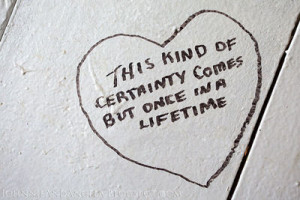 THIS KIND OF
CERTAINTY COMES
BUT ONCE IN A
LIFETIME